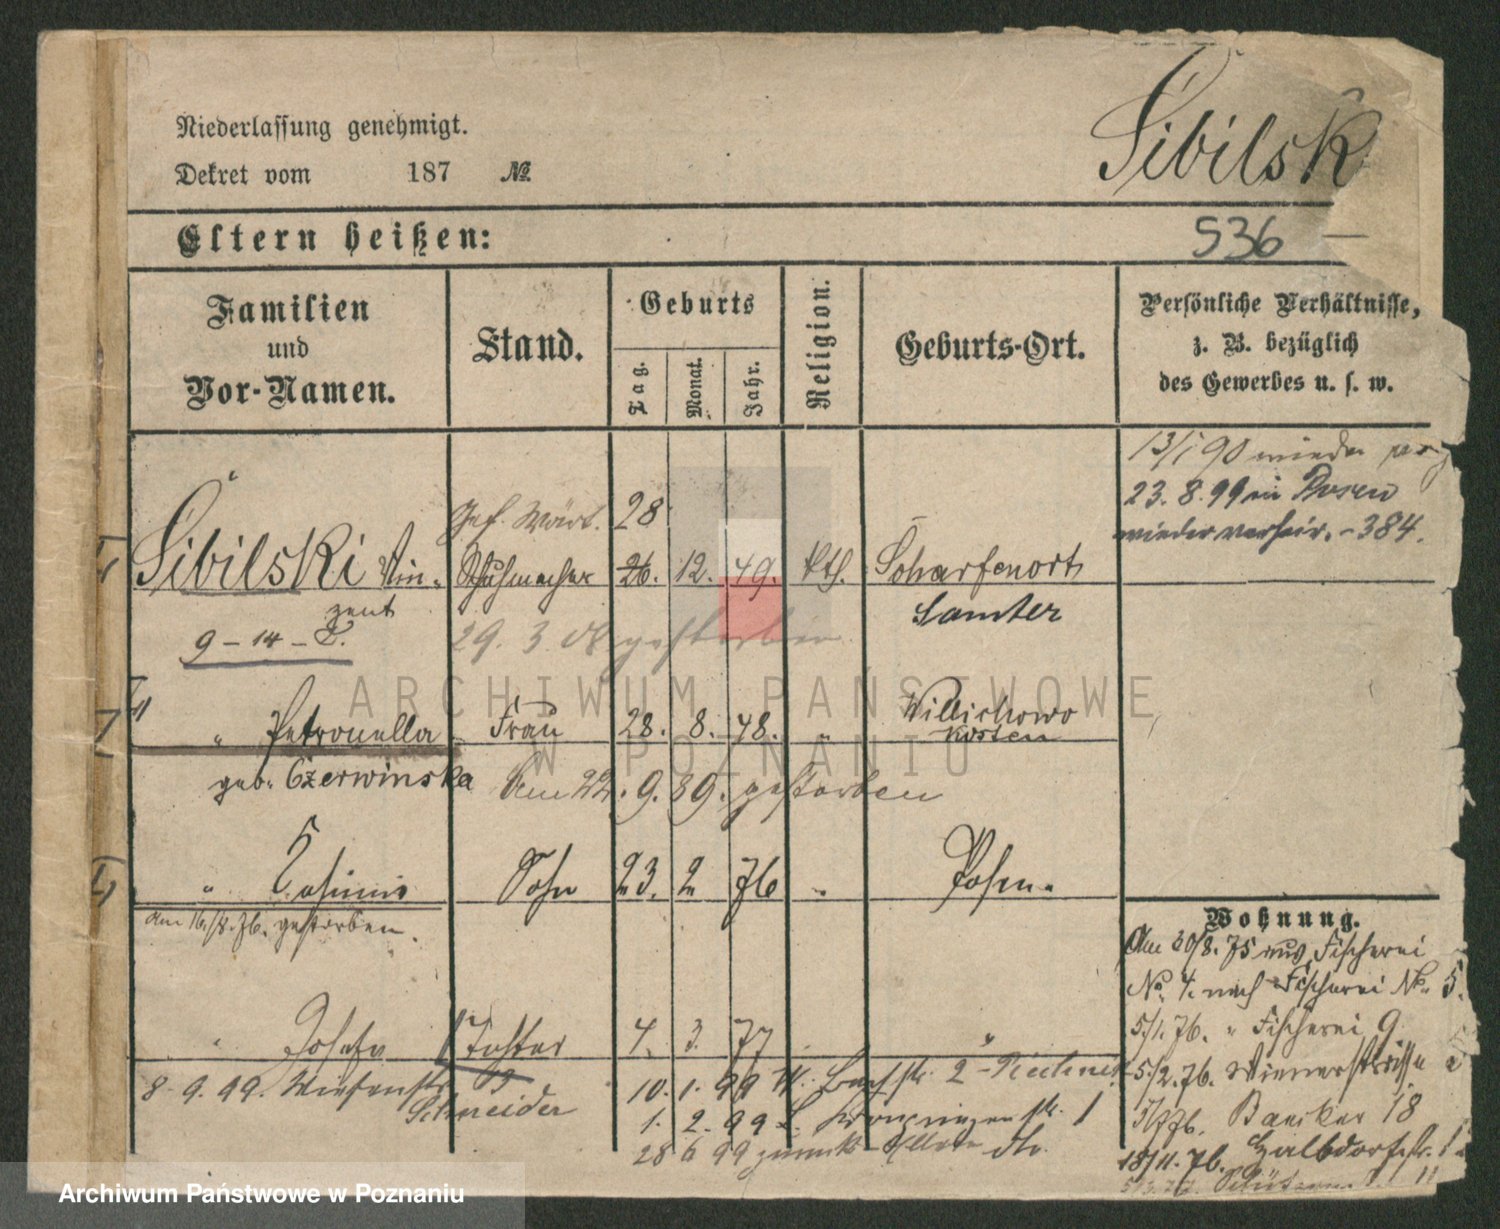 Niederlassung genehmigt.
Dekret vom 187 №
Sibilsk
536 —
Eltern heißen:
Familien und Vor-Namen.
Stand.
Geburts
Tag. Monat. Jahr.
Religion.
Geburts-Ort.
Persönliche Verhältnisse,
z. B. bezüglich
des Gewerbes u. s. w.
13/1 90 wieder
23. 8. 99 in Posen
wieder verheir. - 384.
Gef. Wärt. 28
Sibilski Vin- Schuhmacher 26. 12. 49. kth. Scharfenort
zent Samter
9 - 14 - 29. 3. 08 gestorben
" Petronella Frau 28. 8. 48. " Willichowo
Kosten
geb. Czerwinska Am 22. 9. 89. gestorben
" Casimir Sohn 23. 2 76 " Posen.
am 16./8. 76. gestorben.
Wohnung.
Am 30/8. 75 aus Fischerei
No. 4. nach Fischerei No. 5.
5/1. 76. " Fischerei 9
" Josefa Tochter 4. 3. 77 "
5/2. 76. Wienerstrasse
8. 9. 99. Wiesenstr. 3 10. 1. 99 2 -
Schneider 1. 2. 99 Kronprinzenstr. 1
5/7 76. Baecker 18
28 6 99 zurück
18/11. 76. Halbdorfstr.
ARCHIWUM PAŃSTWOWE
W POZNANIU
Archiwum Państwowe w Poznaniu